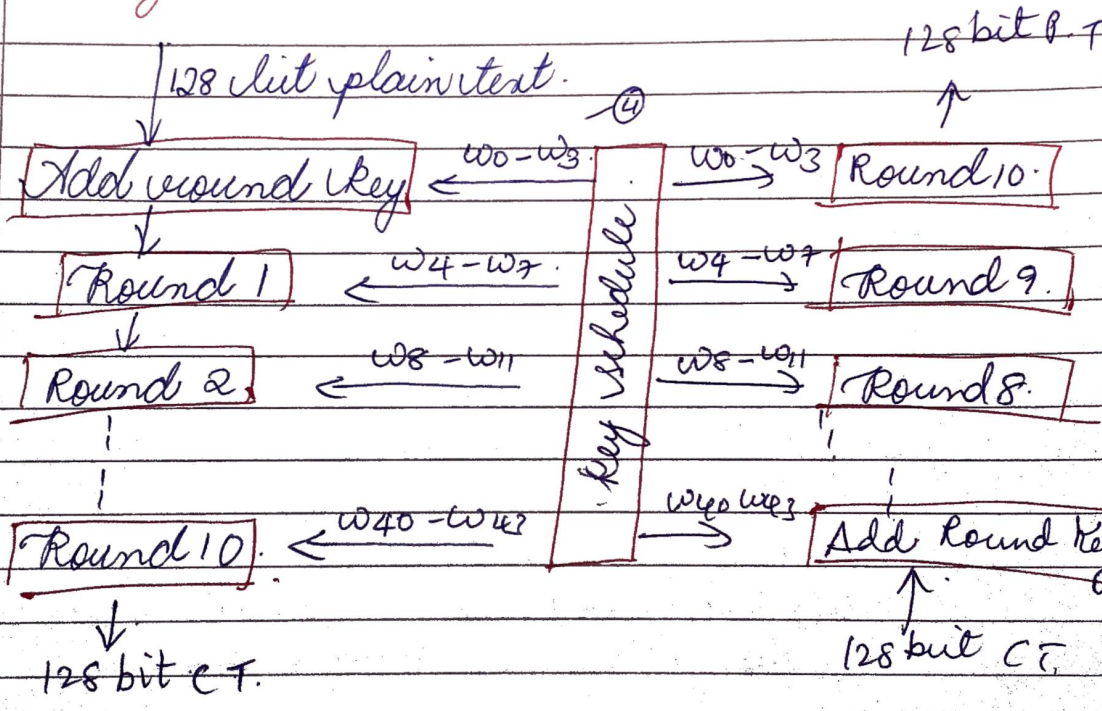 128 bit P.T
128 bit plain text.
4
Add round key
w0-w3.
w0-w3
Round 10.
Round 1
w4-w7.
w4-w7
Round 9.
Round 2
w8-w11
w8-w11
Round 8.
Key schedule
Round 10.
w40-w43
w40 w43
Add Round Ke
128 bit CT.
128 bit CT.